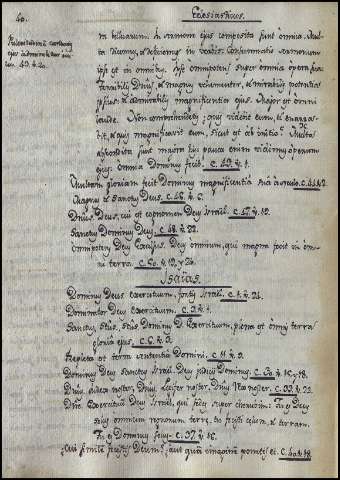 40.
Ecclesiasticus.
in bitumen. In sermone ejus composita sunt omnia. Mul-
ta dicemus, et deficiemus in verbis. Consummatio sermonum
ipse est in omnibus. Ipse omnipotens super omnia opera sua.
Terribilis Dnus, et magnus vehementer, et mirabilis potentia
ipsius, et admirabilis magnificentia ejus. Major est omni
laude. Non comprehendetis; quis vidit eum, et enarra-
bit, et quis magnificavit eum, sicut est ab initio? Multa
abscondita sunt majora his; pauca enim vidimus operum
ejus: Omnia Dominus fecit.
Multam gloriam fecit Dominus magnificentia sua a saeculo. c. 44
Magnus et Sanctus Deus. c. 46.
Dnus Deus, cui est cognomen Deus Israel. c. 47. 18.
Sanctus Dominus Deus. c. 48. 22.
Omnipotens Deus Excelsus. Deus omnium, qui magna fecit in om-
ni terra. c. 50.
Isaias.
Dominus Deus exercituum, fortis Israel. c. 1. 24.
Dominator Deus exercituum. c. 3. 1.
Sanctus, Stus, Stus, Dominus D. exercituum, plena est omnis terra
gloria ejus. c. 6. 3.
Repleta est terra scientia Domini. c. 11. 9.
Dominus Deus Sanctus Israel. Deus judicii Dominus. c. 30. 18.
Dnus judex noster, Dnus legifer noster, Dnus Rex noster. c. 33. 22.
Dne exercituum Deus Israel, qui sedes super cherubim: Tu es Deus
solus omnium regnorum terrae, tu fecisti coelum, et terram.
Tu es Dominus solus. c. 37. 16.
Cui similem fecistis Deum? aut quam imaginem ponetis ei. c. 40. 18.